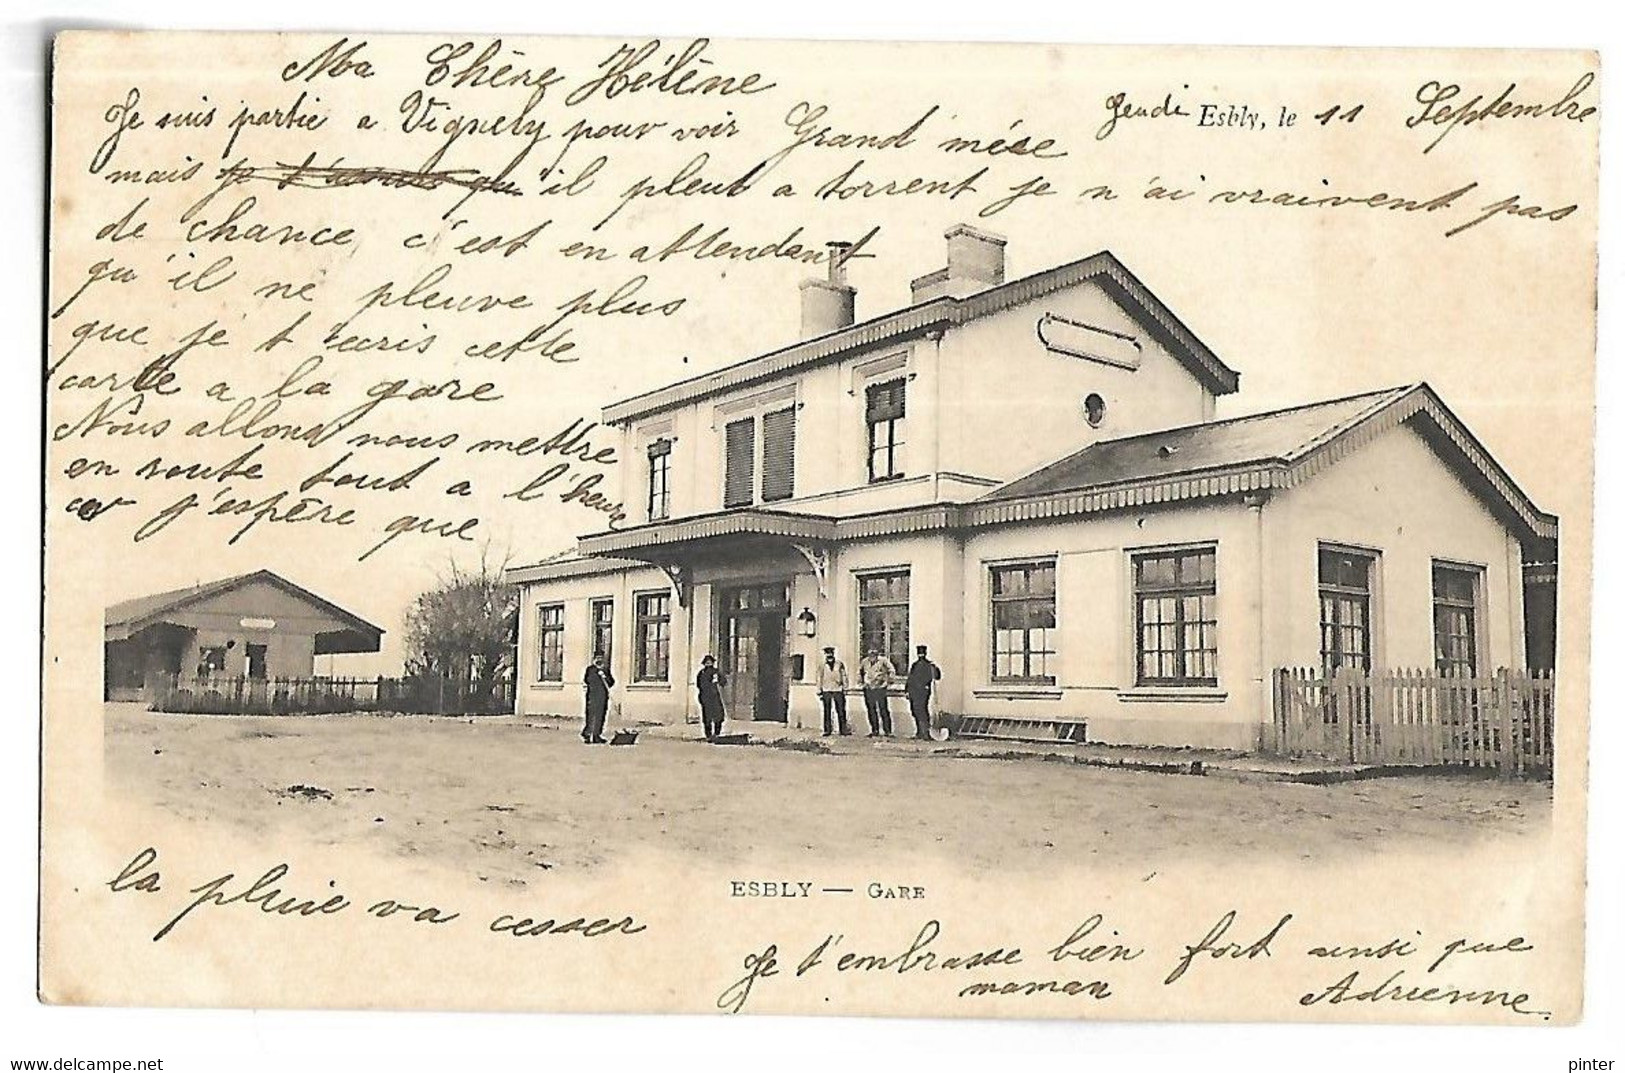 Ma Chère Hélène
Jeudi Esbly, le 11 Septembre
Je suis partie a Vignely pour voir Grand mére
mais je t'assure qu'il pleut a torrent je n'ai vraivent pas
de chance, c'est en attendant
qu'il ne pleuve plus
que je t'ecris cette
carte a la gare
Nôus allons nous mettre
en route tout a l'heure
car j'espère que
la pluie va cesser
ESBLY — GARE
Je t'embrasse bien fort ainsi que
maman Adrienne.
delcampe.net
pinter